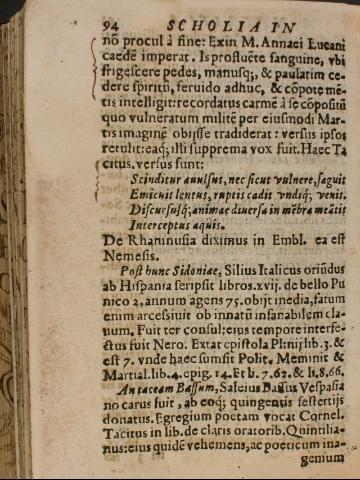 94 SCHOLIA IN
nõ procul à fine: Exin M. Annaei Lucani
caedē imperat. Is profluēte sanguine, vbi
frigescere pedes, manusq;, & paulatim ce-
dere spiritū, feruido adhuc, & cōpote mē-
tis intelligit: recordatus carmē à se cōpositū
quo vulneratum militē per eiusmodi Mar-
tis imaginē obijsse tradiderat: versus ipsos
retulit: eaq; illi suprema vox fuit. Haec Ta
citus. versus sunt:
Scinditur auulsus, nec sicut vulnere, sãguis
Emicuit lentus, ruptis cadit vndiq; venis.
Discursusq; animae diuersa in mēbra meãtis
Interceptus aquis.
De Rhamnusia diximus in Embl. ea est
Nemesis.
Post hunc Sidoniae, Silius Italicus oriūdus
ab Hispania scripsit libros.xvij. de bello Pu
nico 2. annum agens 75. obijt inedia, fatum
enim arcessiuit ob innatū insanabilem cla-
uum. Fuit ter consul: eius tempore interfe-
ctus fuit Nero. Extat epistola Plinij lib.3. &
est 7. vnde haec sumsit Polit. Meminit &
Martial. lib.4. epig. 14. Et b. 7.62. & li.8.66.
Antaeam Bassum, Saleius Bassus Vespasia
no carus fuit, ab eoq; quingentis sestertijs
donatus. Egregium poetam vocat Cornel.
Tacitus in lib. de claris oratorib. Quintilia-
nus: eius quidē vehemens, ac poeticum ina-
genium